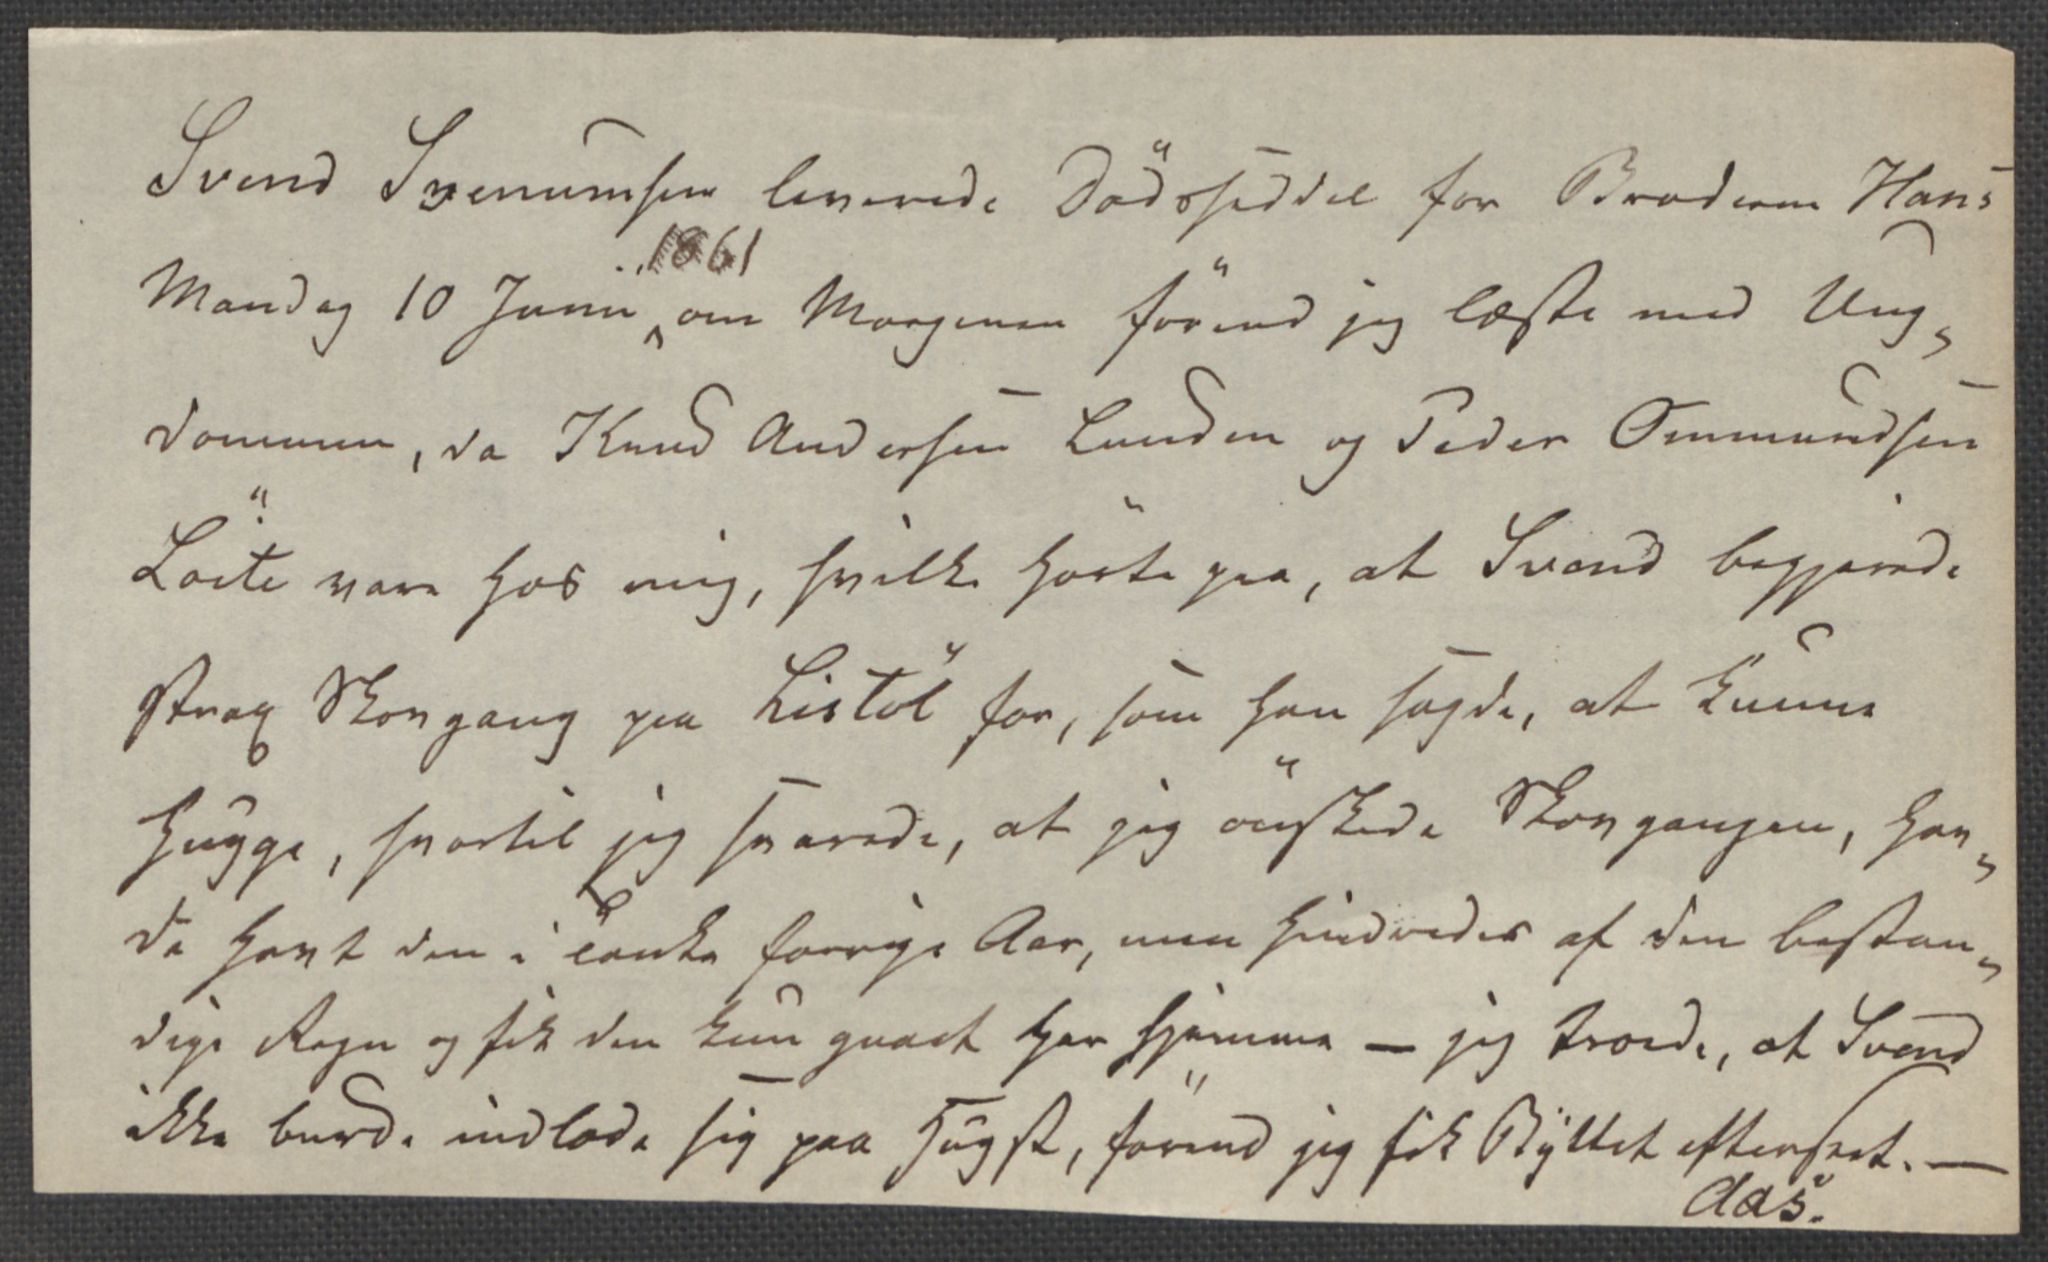 Svend Svenumsen leverede Dödsseddel for Broderen Hans
Mandag 10 Junii 1861 om Morgenen förend jeg læste med Ung-
dommen, da Knud Andersen Lunden og Peder Ommundsen
Löite vare hos mig, hvilke hörte paa, at Svend begjerede
strax Skovgang paa Listöl for, som han sagde, at kunne
hugge, hvortil jeg svarede, at jeg önskede Skovgangen, hav-
de havt den i tanke forrige Aar, men hindredes af den bestan-
dige Regn og fik den kun gaaet her hjemme — jeg troede, at Svend
ikke burde indlade sig paa Hugst, förend jeg fik Byttet efterseet. —
Aas.